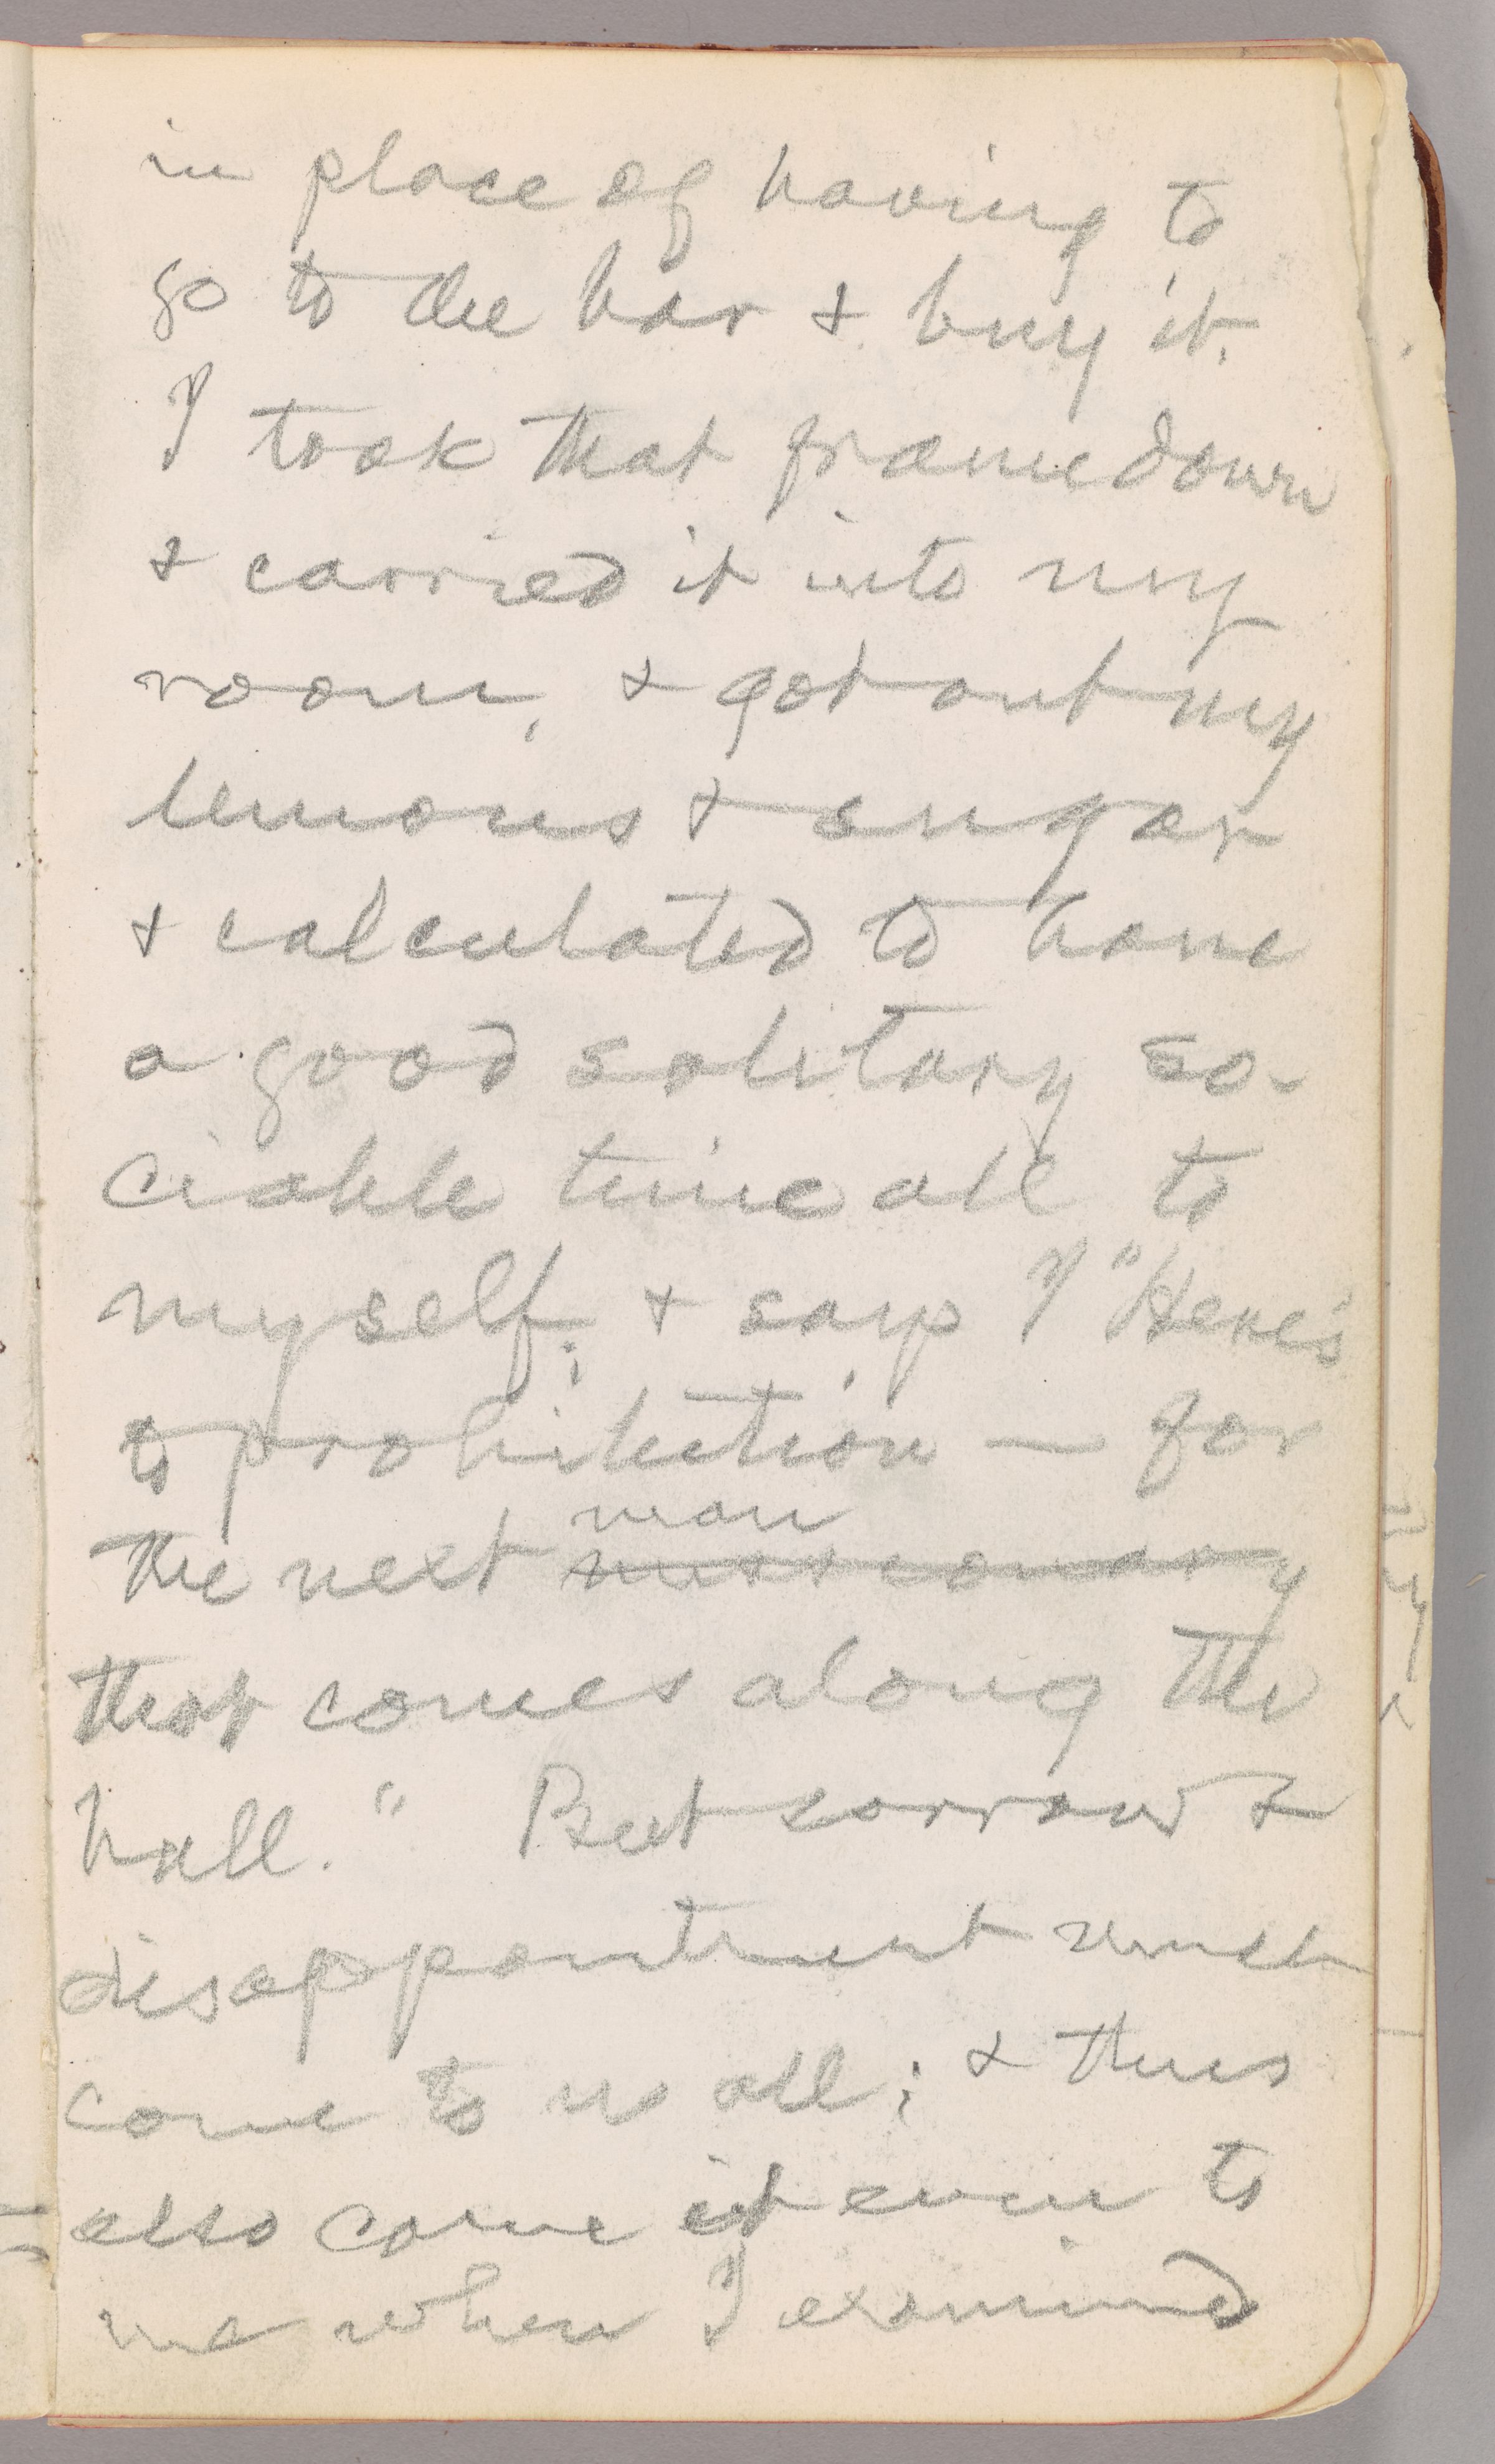 in place of having to
go to the bar & buy it.
I took that frame down
& carried it into my
room, & got out my
lemons & sugar
& calculated to have
a good solitary so-
ciable time all to
myself; & says I "Here's
to prohibition — for
man
the next missionary
that comes along the
hall." But sorrow &
disappointment must
come to us all; & thus
also come it even to
me when I examined